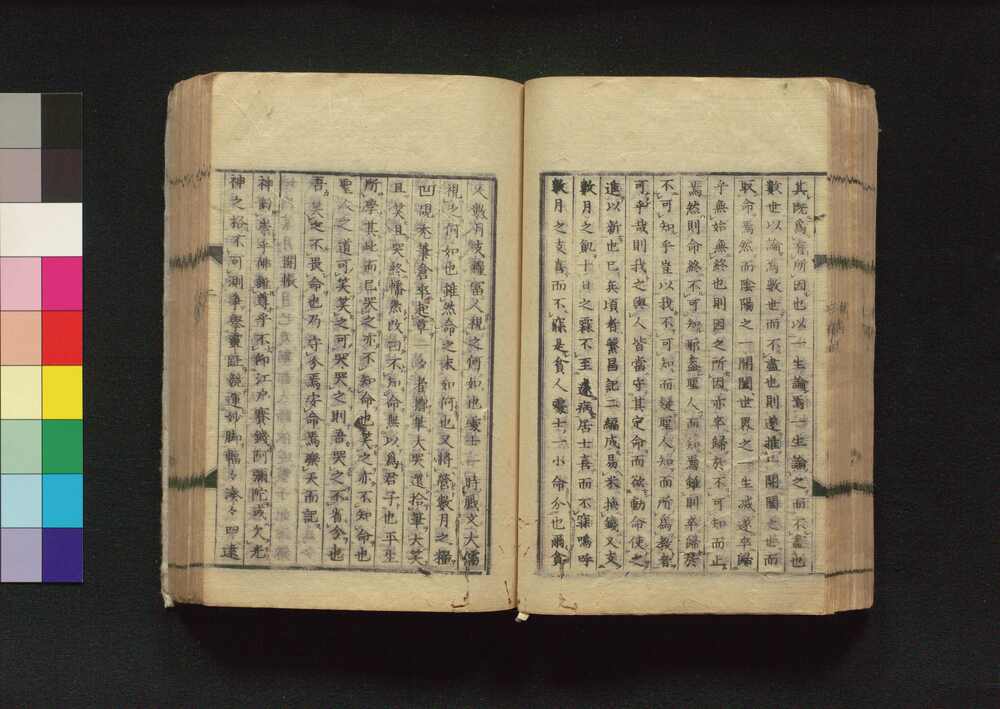 其既為有所因也以一生論焉一生論之而不盡也
數世以論焉數世而不盡也則遂推開闔之世而
歸命焉然而陰陽之一開闔世界之一生滅遂卒歸
乎無始無終也則因之所因亦卒歸於不可知而止
焉然則命終不可知耶盡聖人而知焉雖則卒歸於
不可知乎豈以我不可知而疑聖人知而所為教者
可乎哉則我之與人皆當守其定命而欲動命使之
進以新也已兵頃者繁昌記二編成易米換錢又支
數月之飢十日之霖不至遠病居士喜而不寐嗚呼
數月之支喜而不寐是貧人靈士一小命分也爾貧
人數有支 富人視之何如也 士一時戲文大儒
視之何如也雖然命之來如何也又將營數月之
凹硯禿筆倉卒起章 者擔筆大哭還拾筆大笑
且笑且哭終幡然改曰不知命無以為君子也平生
所學其此而已哭之亦不知命也笑之亦不知命也
聖人之道可笑笑之可哭哭之則吾哭之不省分也
吾笑之不畏命也乃守分焉安命焉樂天而記
開帳
神 崇乎佛 尊乎不知江戶賽錢阿彌陀或欠光
神之格不可測 靈 競運 脚幅々湊々四遠